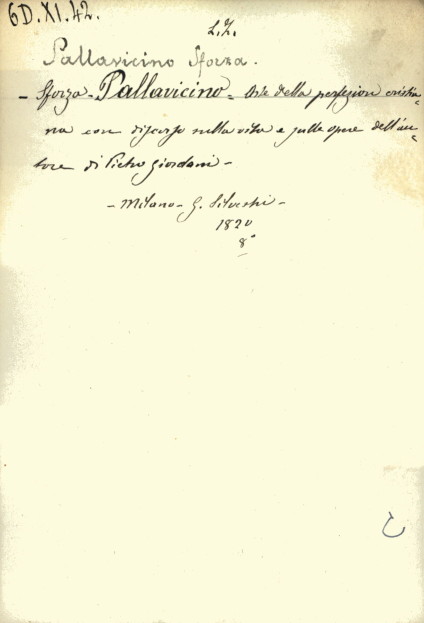 6D.XI.42.
L.Z.
Pallavicino Sforza.
- Sforza - Pallavicino - Arte della perfezione cristia-
na con discorso nella vita e sulle opere dell'au-
tore di Pietro Giordani -
- Milano - G. Silvestri -
1820
8°